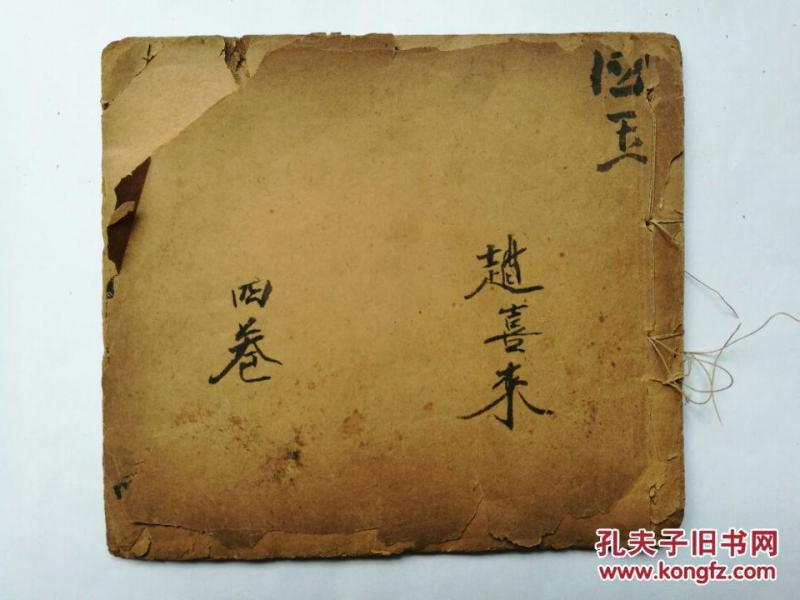 趙喜来
四卷
孔夫子旧书网
www.kongfz.com